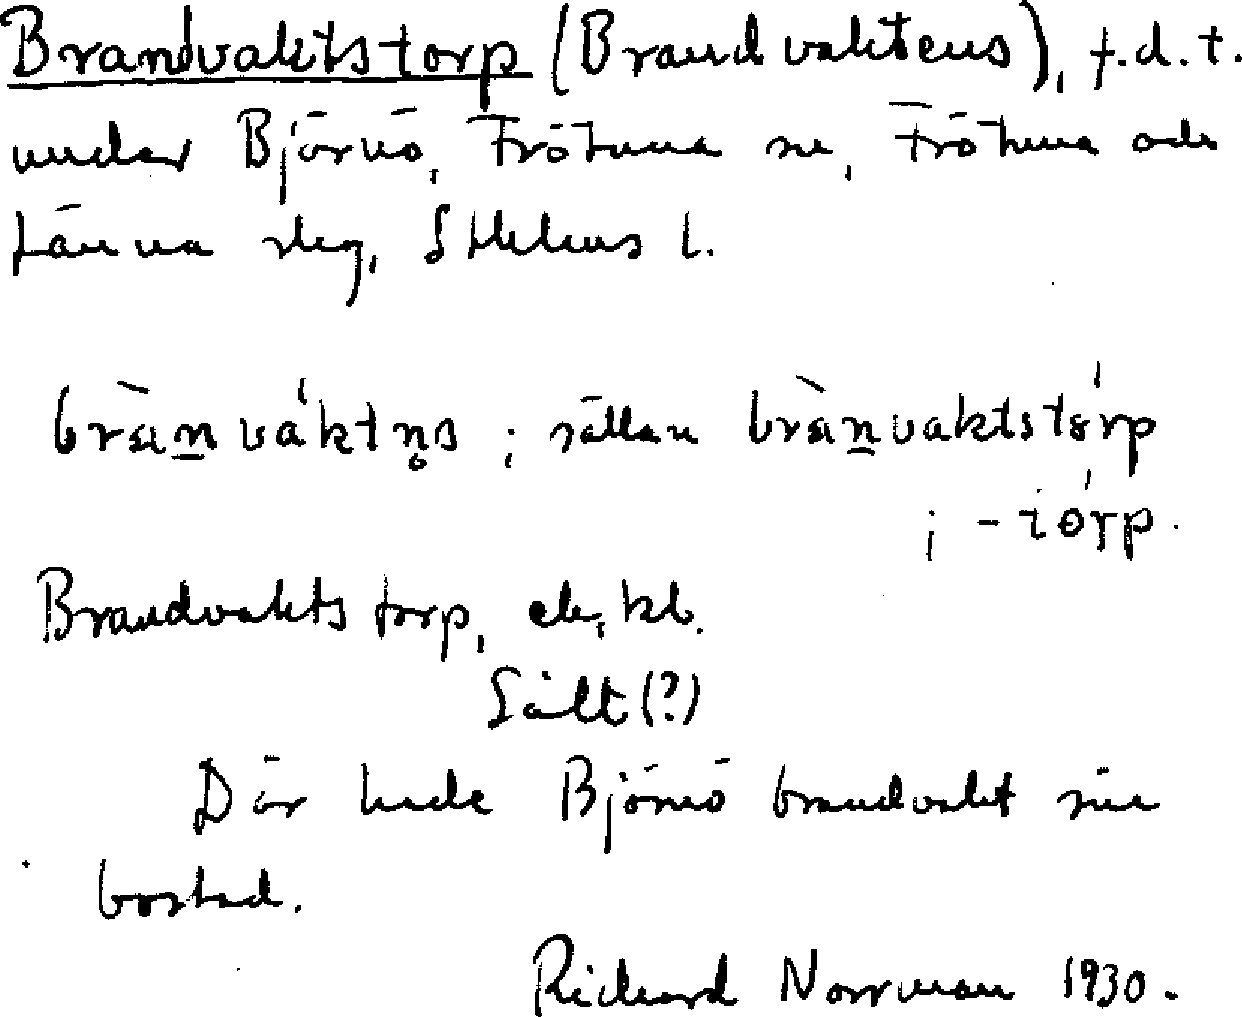 Brandvaktstorp (Brandvaktens), f.d.t.
under Björnö, Frötuna sn, Frötuna och
Länna slg, Sthlms l.
brànváktn̥s ; sällan brànvaktstórp
; -tórp.
Brandvaktstorp, ek, kb.
Sält(?)
Där hade Björnö brandvakt sin
bostad.
Richard Norrman 1930.